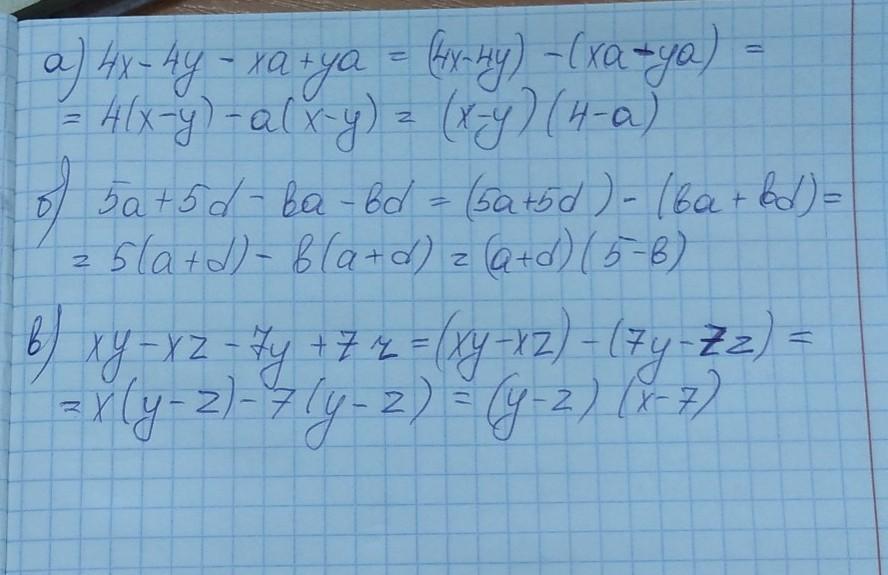 а) 4x-4y-xa+ya = (4x-4y)-(xa-ya) =
= 4(x-y)-a(x-y) = (x-y)(4-a)
б) 5a+5d-ba-bd = (5a+5d)-(ba+bd)=
= 5(a+d)-b(a+d) = (a+d)(5-b)
в) xy-xz-7y+7z=(xy-xz)-(7y-7z)=
=x(y-z)-7(y-z) = (y-z)(x-7)